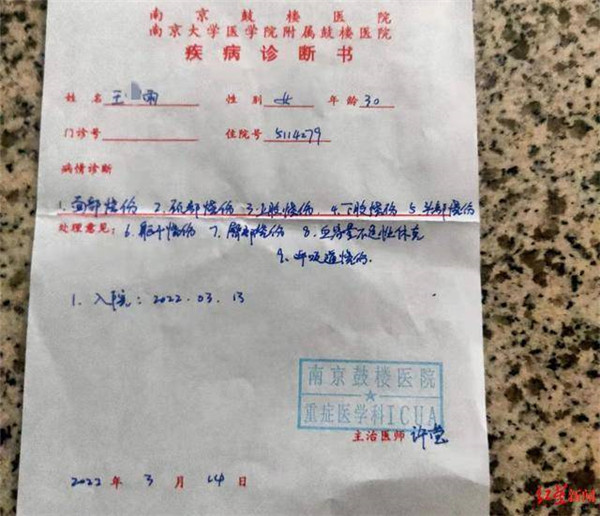 南京鼓楼医院
南京大学医学院附属鼓楼医院
疾病诊断书
姓名 王 雨 性别 女 年龄 30
门诊号 住院号 5114279
病情诊断
1. 面部烧伤 2. 颈部烧伤 3. 上肢烧伤 4. 下肢烧伤 5. 头部烧伤
处理意见: 6. 躯干烧伤 7. 臀部烧伤 8. 血容量不足性休克
9. 呼吸道烧伤.
1. 入院: 2022.03.13
南京鼓楼医院
重症医学科ICUA
主治医师 许莹
2022年 3月 14日
红星新闻